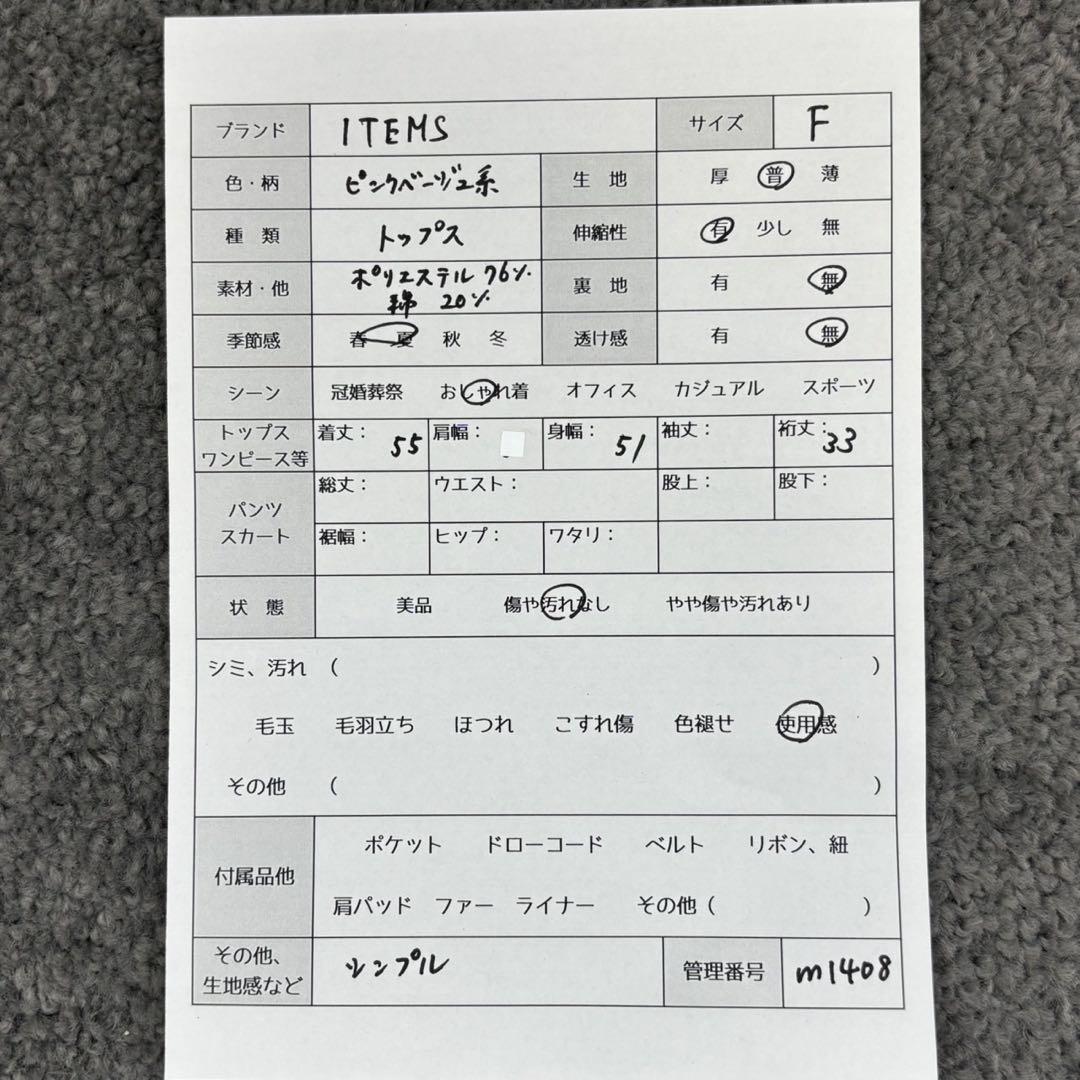 ブランド ITEMS サイズ F
色・柄 ピンクベージュ系 生 地 厚 普 薄
種 類 トップス 伸縮性 有 少し 無
素材・他 ポリエステル 76% 綿 20% 裏 地 有 無
季節感 春 夏 秋 冬 透け感 有 無
シーン 冠婚葬祭 おしゃれ着 オフィス カジュアル スポーツ
トップス ワンピース等 着丈: 55 肩幅: 身幅: 51 袖丈: 裄丈: 33
パンツ スカート 総丈: ウエスト: 股上: 股下:
裾幅: ヒップ: ワタリ:
状 態 美品 傷や汚れなし やや傷や汚れあり
シミ、汚れ ( )
毛玉 毛羽立ち ほつれ こすれ傷 色褪せ 使用感
その他 ( )
付属品他 ポケット ドローコード ベルト リボン、紐
肩パッド ファー ライナー その他 ( )
その他、生地感など シンプル 管理番号 m1408